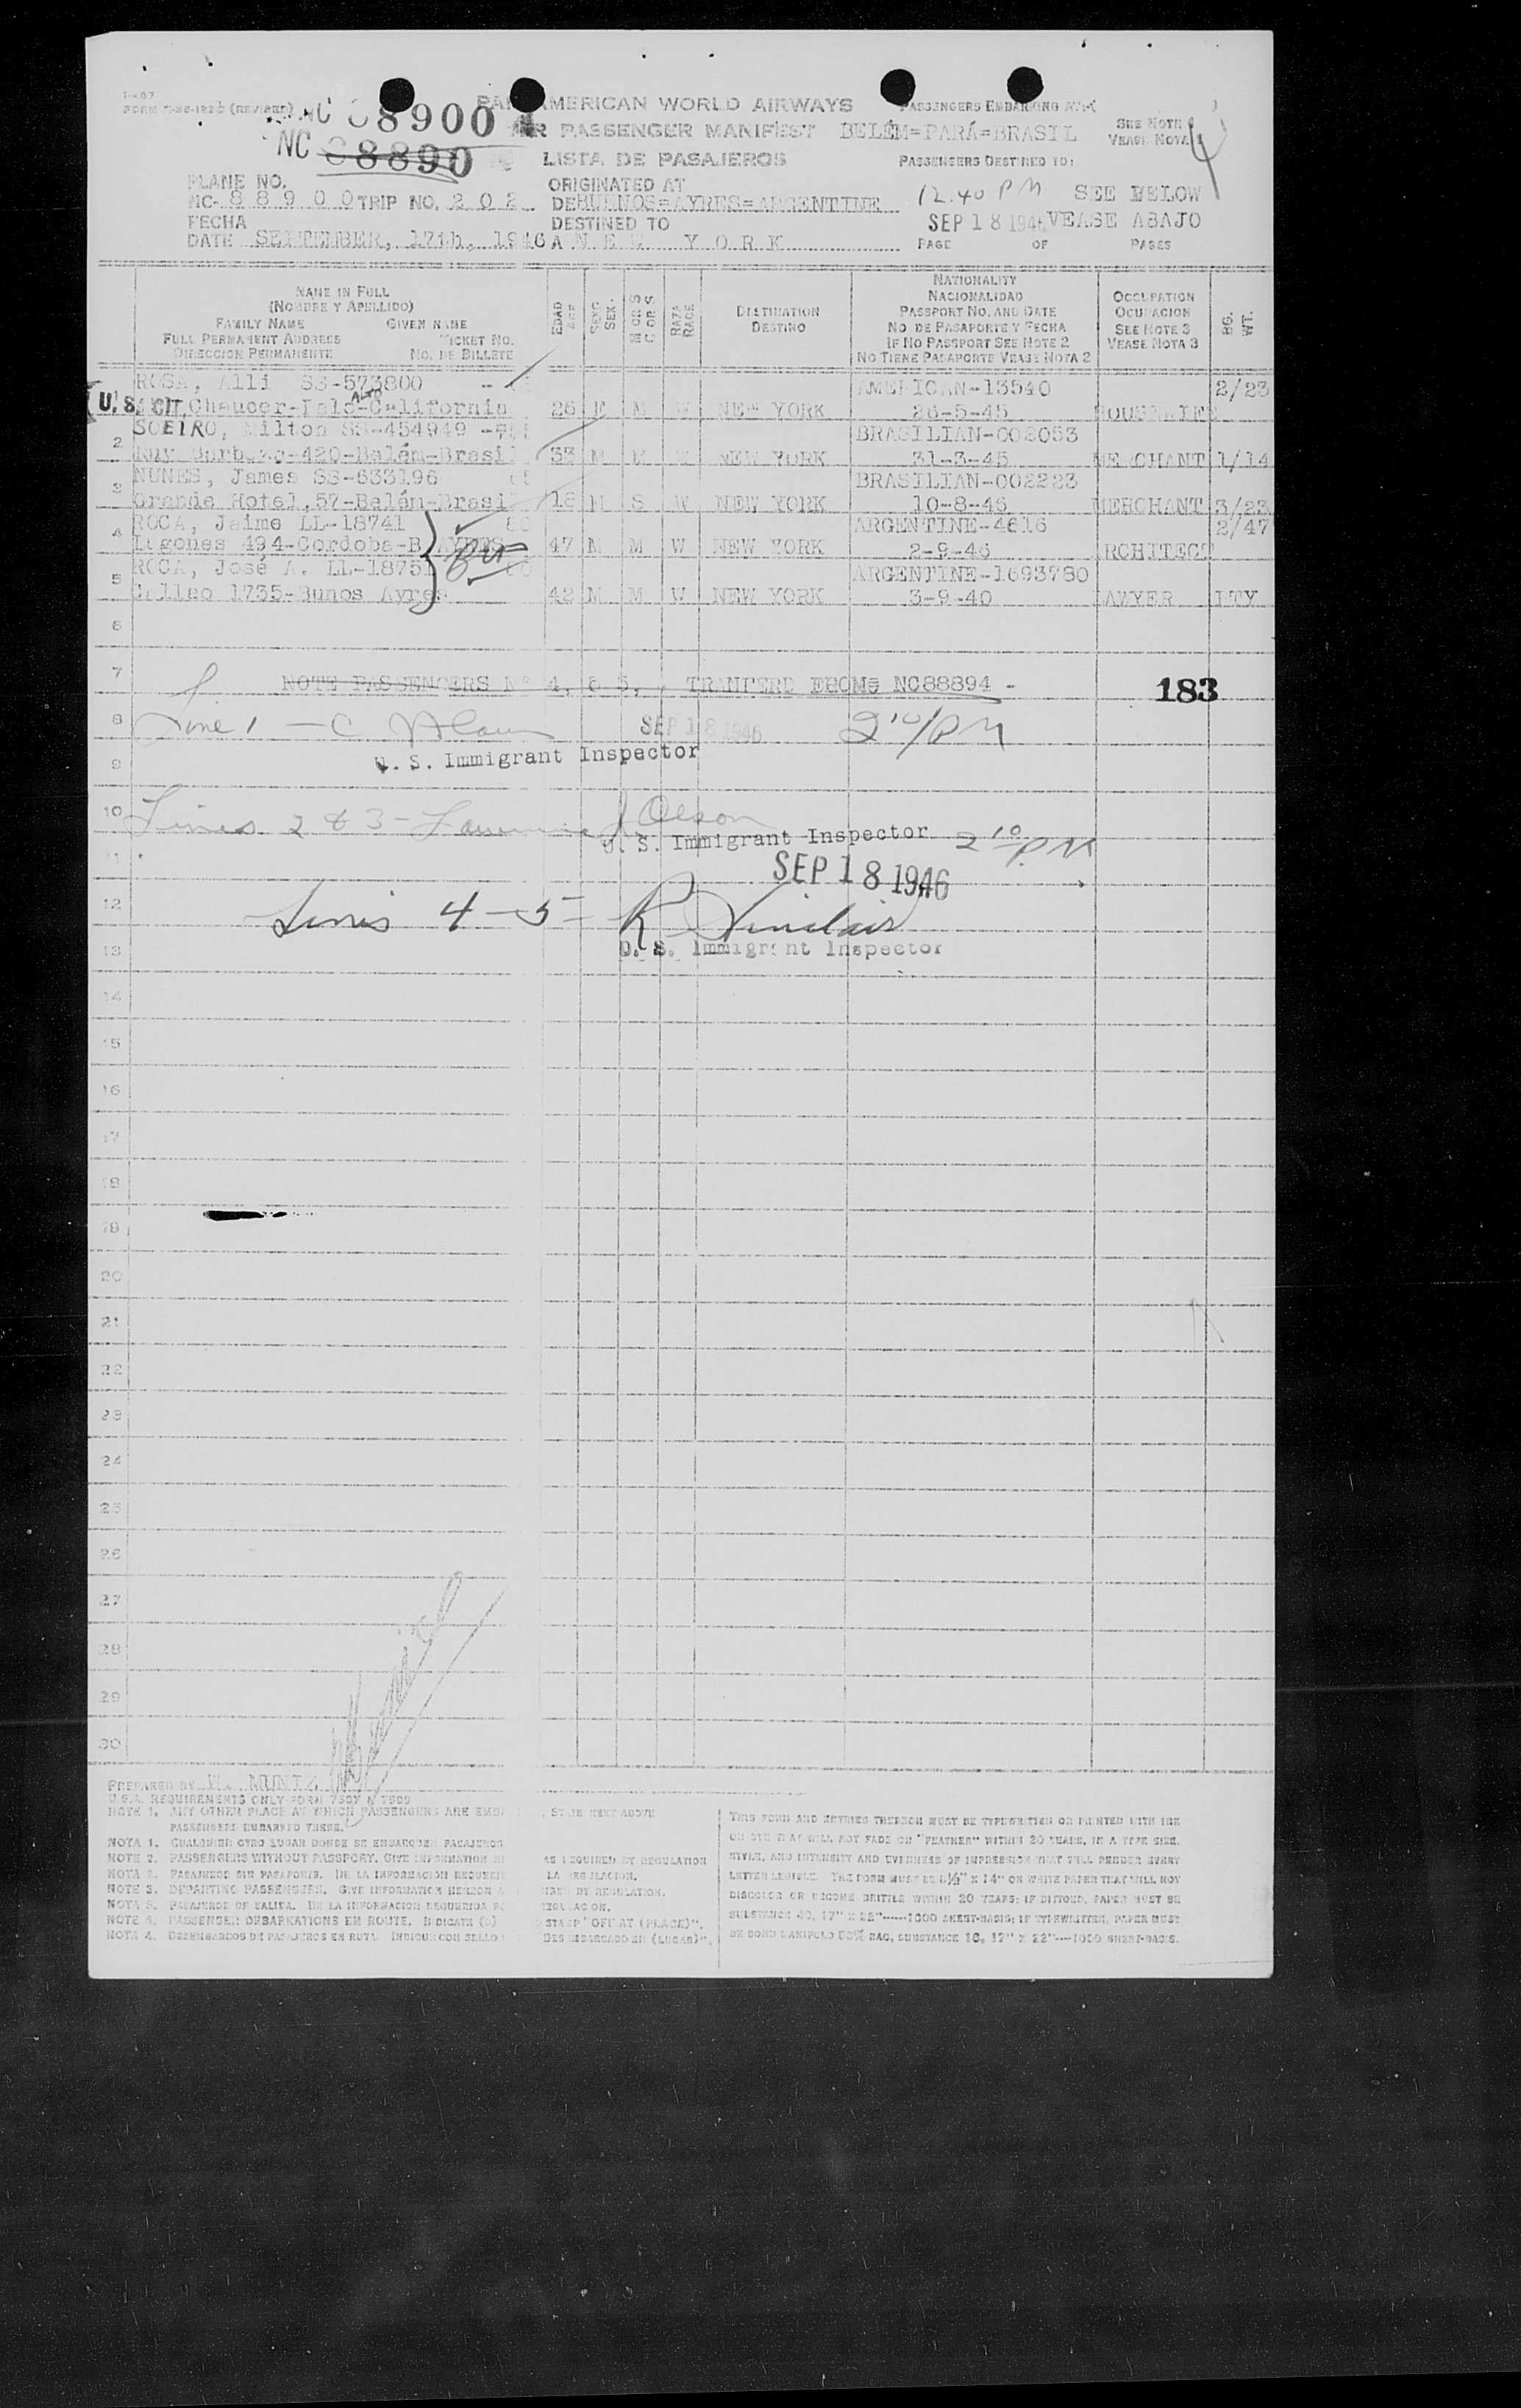 I-467
FORM (REVISED)
NC 88900
PAN AMERICAN WORLD AIRWAYS
PASSENGERS EMBARKING AT:(
)
NC 88890
AIR PASSENGER MANIFEST
BELÉM=PARÁ=BRASIL
SEE NOTE 1
VEASE NOTA 1
4
LISTA DE PASAJEROS
PASSENGERS DESTINED TO:
PLANE NO.
NC- 8 8 9 0 0 TRIP NO. 2 0 2
ORIGINATED AT
DE BUENOS=AYRES=ARGENTINE
12.40 PM
SEE BELOW
FECHA
DATE SEPTEMBER, 17th, 1946
DESTINED TO
A N E W Y O R K
SEP 18 1946
VEASE ABAJO
PAGE OF PAGES
NAME IN FULL
(NOMBRE Y APELLIDO)
FAMILY NAME GIVEN NAME
FULL PERMANENT ADDRESS TICKET NO.
DIRECCION PERMANENTE NO. DE BILLETE
EDAD AGE
SEXO SEX.
M OR S C OR S
RAZA RACE
DESTINATION
DESTINO
NATIONALITY
NACIONALIDAD
PASSPORT NO. AND DATE
NO DE PASAPORTE Y FECHA
IF NO PASSPORT SEE NOTE 2
NO TIENE PASAPORTE VEASE NOTA 2
OCCUPATION
OCUPACION
SEE NOTE 3
VEASE NOTA 3
BG. WT.
ROSA, Alli SS-573800 AMERICAN-13540 2/23
U.S. CIT. Chaucer-Palo-California 26 F M W NEW YORK 26-5-45 HOUSEWIFE
ALTO
SOEIRO, Milton SS-454949 BRASILIAN-002053
2 Ruy Barboza-420-Belém-Brasil 33 M M W NEW YORK 31-3-45 MERCHANT 1/14
NUNES, James SS-533196 BRASILIAN-002223
3 Grande Hotel,57-Belém-Brasil 18 M S W NEW YORK 10-8-46 MERCHANT 3/23
ROCA, Jaime LL-18741 ARGENTINE-4616 2/47
4 Lugones 494-Cordoba-B.AYRES 47 M M W NEW YORK 2-9-46 ARCHITECT
ROCA, José A. LL-18751 ARGENTINE-1693780
5 Callao 1735-Bunos Ayres 42 M M W NEW YORK 3-9-40 LAWYER ITY
6
7 NOTE PASSENGERS Nº 4, & 5, , TRANFERD FROM NC88894 -
183
8 Line 1 - C SEP 18 1946 2 10/PM
9 U. S. Immigrant Inspector
10 Lines 2 & 3 - Lawrence J Olson
U. S. Immigrant Inspector 2 10 PM
11 SEP 18 1946
12 Lines 4-5= R Sinclair
13 U. S. Immigrant Inspector
14
15
16
17
18
19
20
21
22
23
24
25
26
27
28
29
30
PREPARED BY MUNIZ
U.S.A. REQUIREMENTS ONLY-FORM 7507 & 7509
NOTE 1. ANY OTHER PLACE AT WHICH PASSENGERS ARE , STATE NEXT ABOVE
PASSENGERS EMBARKED THERE.
NOTA 1. CUALQUIER OTRO LUGAR DONDE SE EMBARQUEN PASAJEROS
NOTE 2. PASSENGERS WITHOUT PASSPORT. GIVE INFORMATION AS REQUIRED BY REGULATION
NOTA 2. PASAJEROS SIN PASAPORTE. DE LA INFORMACION LA REGULACION.
NOTE 3. DEPARTING PASSENGERS. GIVE INFORMATION HEREON BY REGULATION.
NOTA 3. PASAJEROS DE SALIDA. DE LA INFORMACION REQUERIDA
NOTE 4. PASSENGER DEBARKATIONS EN ROUTE. INDICATE STAMP "OFF AT (PLACE)".
NOTA 4. DESEMBARCOS DE PASAJEROS EN RUTA INDIQUE CON SELLO DESEMBARCADO EN (LUGAR)".
THIS FORM AND ENTRIES THEREON MUST BE TYPEWRITTEN OR PRINTED WITH INK
OR DYE THAT WILL NOT FADE OR "FEATHER" WITHIN 20 YEARS, IN A TYPE SIZE,
STYLE, AND INTENSITY AND EVENNESS OF IMPRESSION THAT WILL RENDER EVERY
LETTER LEGIBLE. THE FORM MUST BE 8½" X 14" ON WHITE PAPER THAT WILL NOT
DISCOLOR OR BECOME BRITTLE WITHIN 20 YEARS; IF DITTOED, PAPER MUST BE
SUBSTANCE 40, 17" X 22"-----1000 SHEET-BASIS; IF TYPEWRITTEN, PAPER MUST
BE BOND MANIFOLD 50% RAG, SUBSTANCE 16, 17" X 22"---1000 SHEET-BASIS.